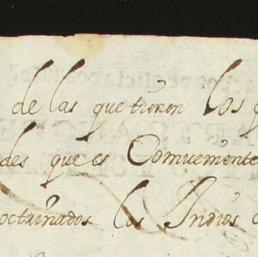 de las que tieren los
des que es Comuemente
octrinados los Indios